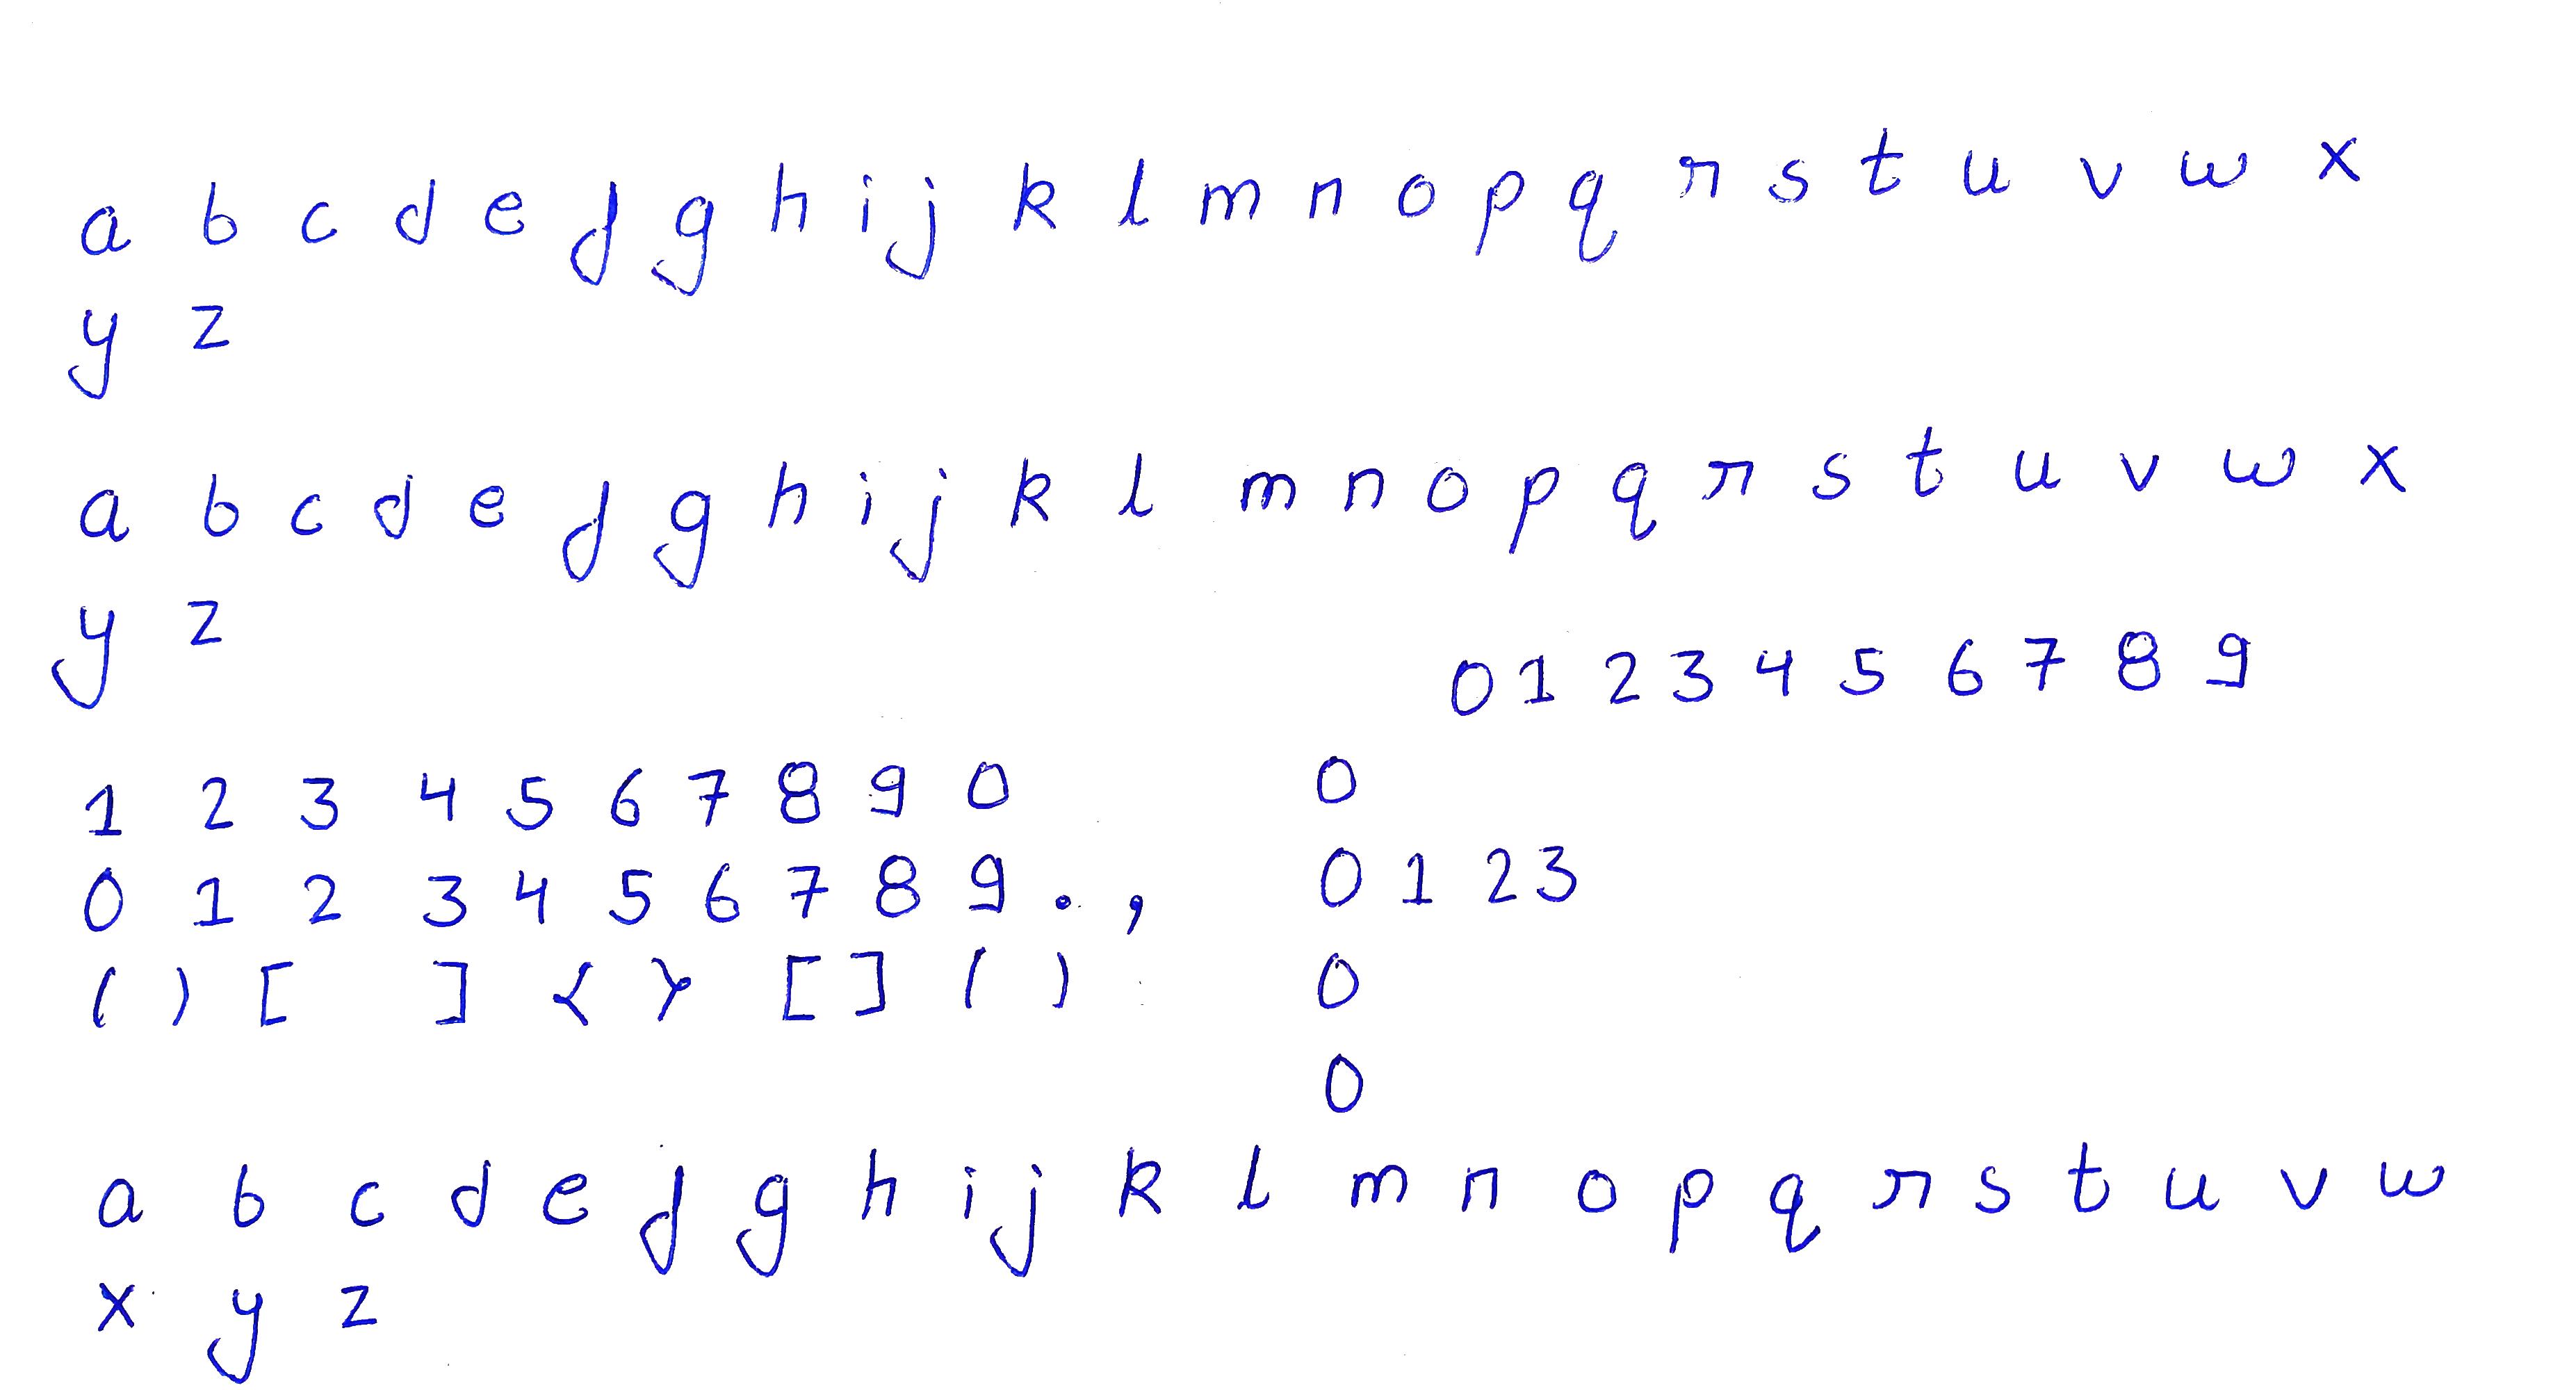 a b c d e f g h i j k l m n o p q r s t u v w x
y z
a b c d e f g h i j k l m n o p q r s t u v w x
y z
0 1 2 3 4 5 6 7 8 9
1 2 3 4 5 6 7 8 9 0 0
0 1 2 3 4 5 6 7 8 9 . , 0 1 2 3
( ) [ ] < > [ ] ( ) 0
0
a b c d e f g h i j k l m n o p q r s t u v w
x y z